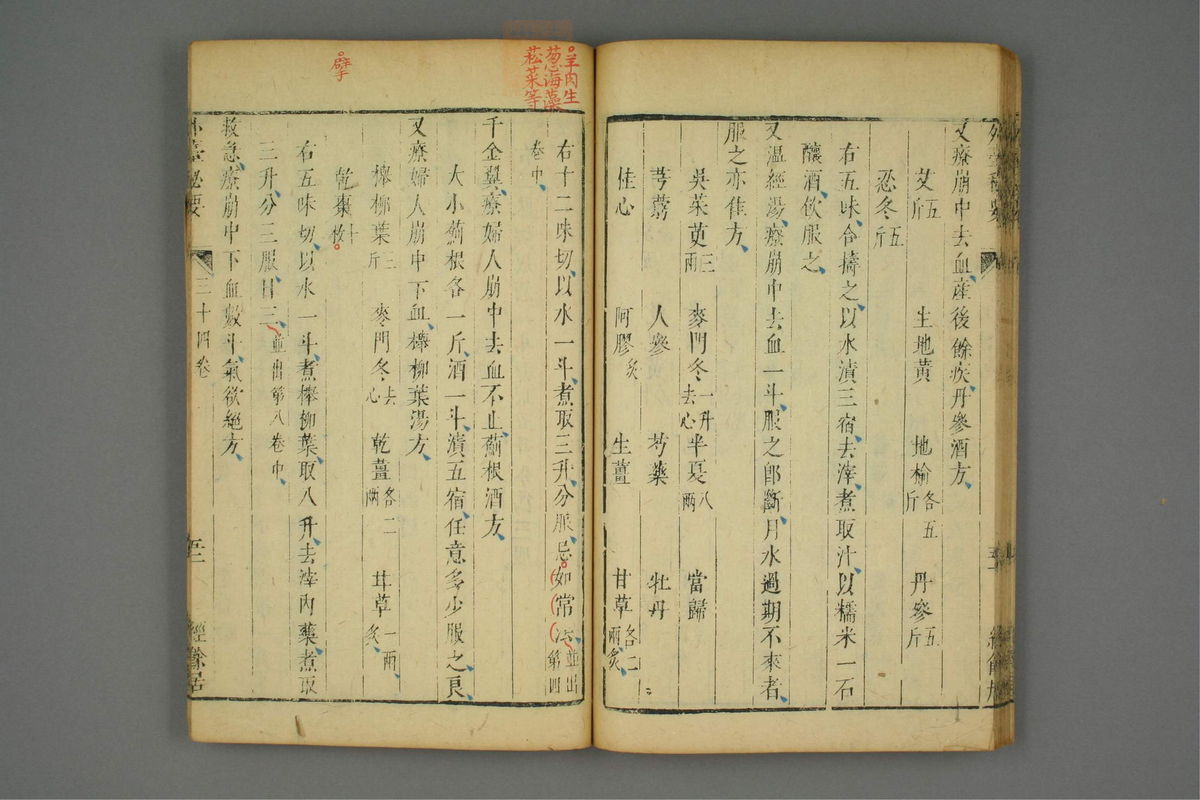 又療崩中去血産後餘疾丹參酒方
艾五斤 生地黄 地榆各五斤 丹參五斤
忍冬五斤
右五味合擣之以水漬三宿去滓煮取汁以糯米一石
釀酒飲服之
又温經湯療崩中去血一斗服之卽斷月水過期不來者
服之亦佳方
吳茱萸三兩 麥門冬一升去心 半夏八兩 當歸
芎藭 人參 芍藥 牡丹
桂心 阿膠炙 生薑 甘草各二兩炙
右十二味切以水一斗煮取三升分服忌如常法並出第四
卷中
千金翼療婦人崩中去血不止薊根酒方
大小薊根各一斤酒一斗漬五宿任意多少服之良
又療婦人崩中下血櫸柳葉湯方
櫸柳葉三斤 麥門冬去心 乾薑各二兩 甘草一兩炙
乾棗十枚
右五味切以水一斗煮櫸柳葉取八升去滓內藥煮取
三升分三服日三並出第八卷中
救急療崩中下血數斗氣欲絕方
外臺秘要 三十四卷 五十二 經餘居
羊肉生
葱海藻
菘菜等
擘